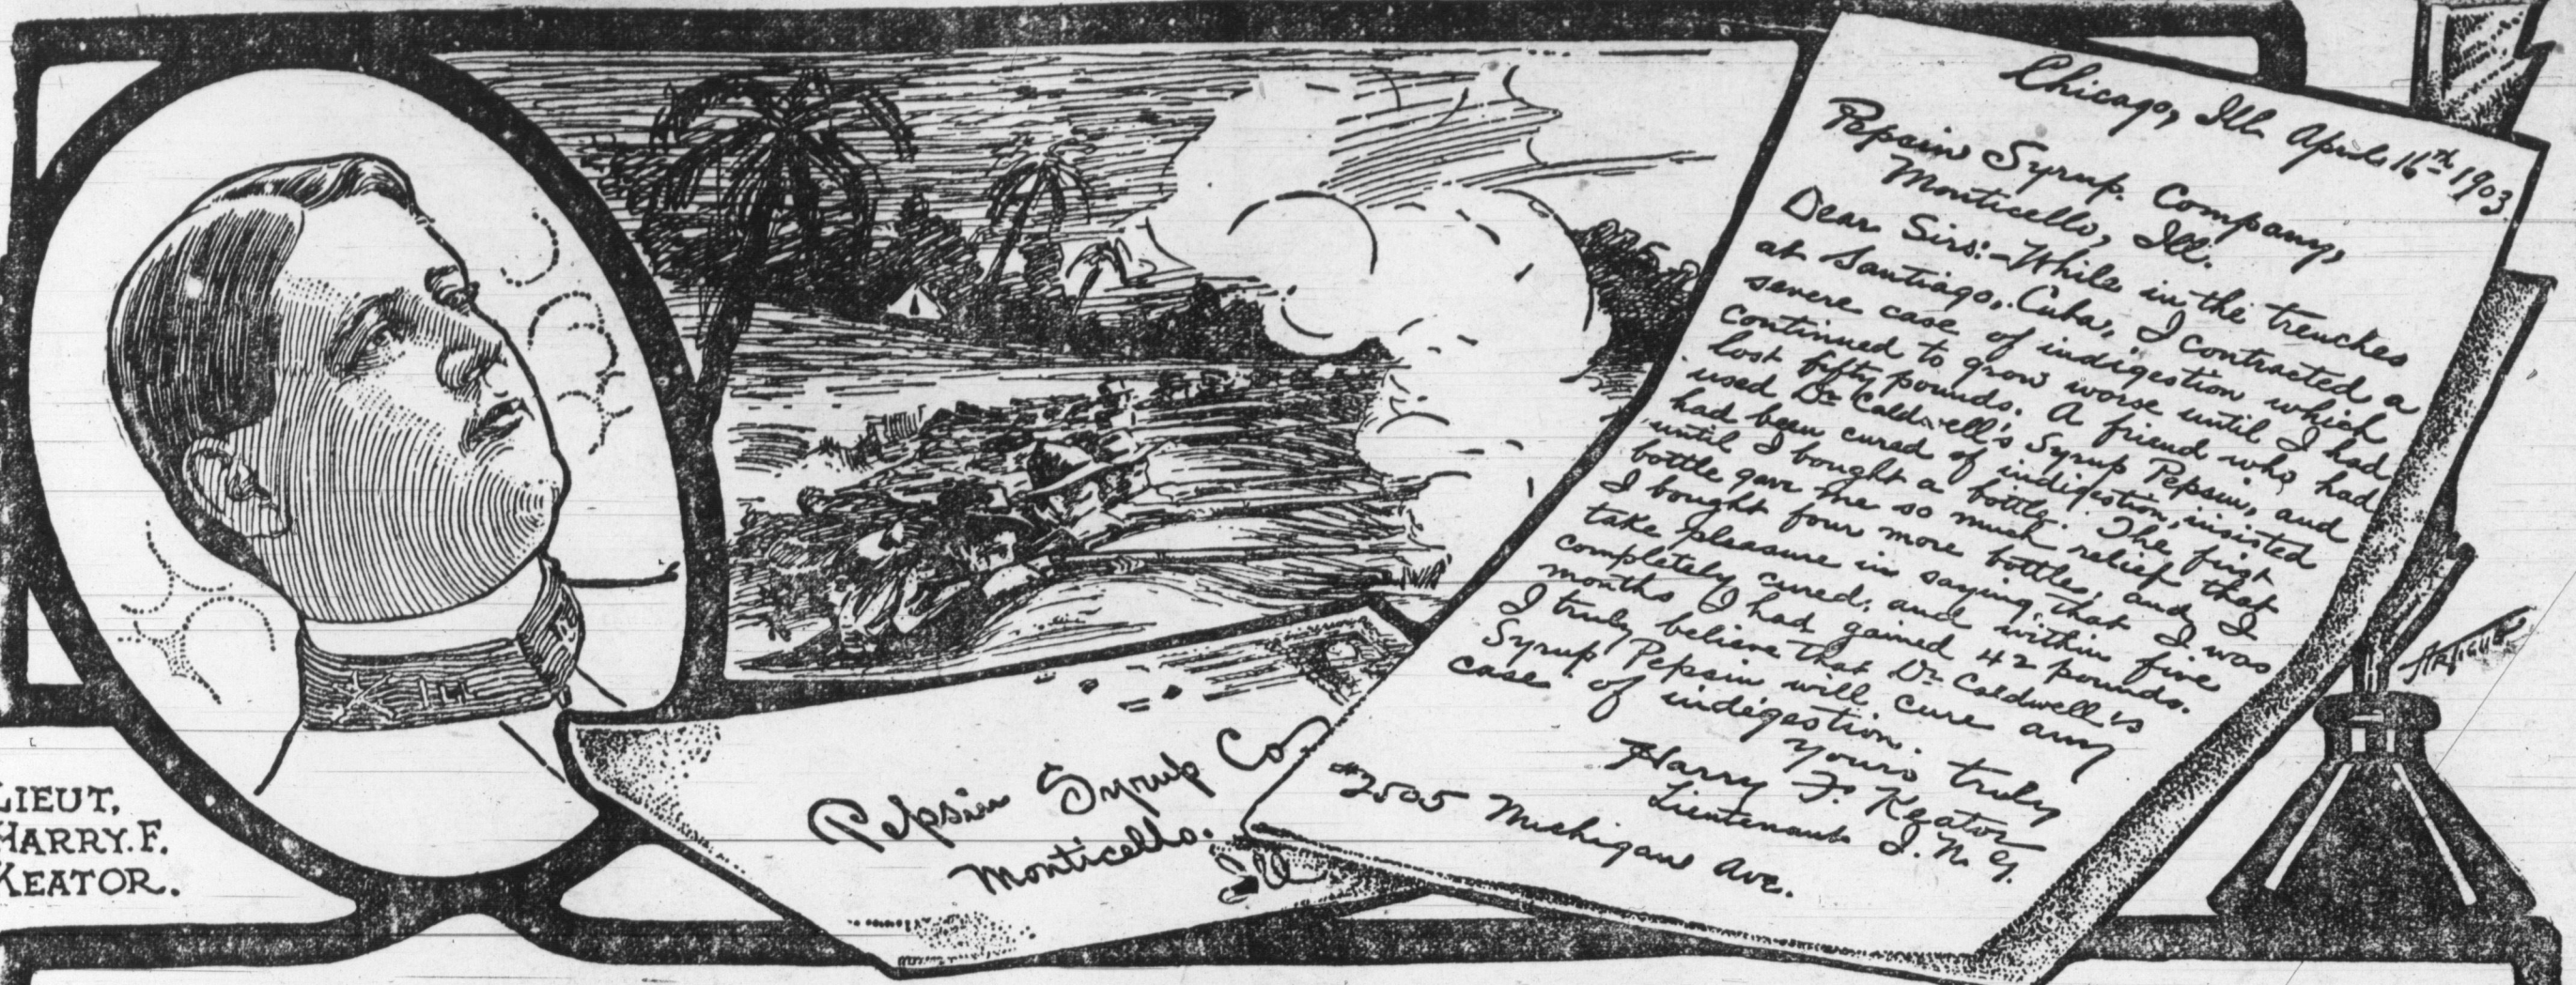 LIEUT.
HARRY. F.
KEATOR.
ILL
Pepsin Syrup Co
Monticello.
Ill
Chicago, Ill. April 16th 1903.
Pepsin Syrup Company,
Monticello, Ill.
Dear Sirs:- While in the trenches
at Santiago, Cuba, I contracted a
severe case of indigestion which
continued to grow worse until I had
lost fifty pounds. A friend who had
used Dr Caldwell's Syrup Pepsin, and
had been cured of indigestion, insisted
until I bought a bottle. The first
bottle gave me so much relief that
I bought four more bottles, and I
take pleasure in saying that I was
completely cured, and within five
months I had gained 42 pounds.
I truly believe that Dr Caldwell's
Syrup Pepsin will cure any
case of indigestion.
Yours truly
Harry F. Keator
Lieutenant I. N. G.
#2505 Michigan Ave.